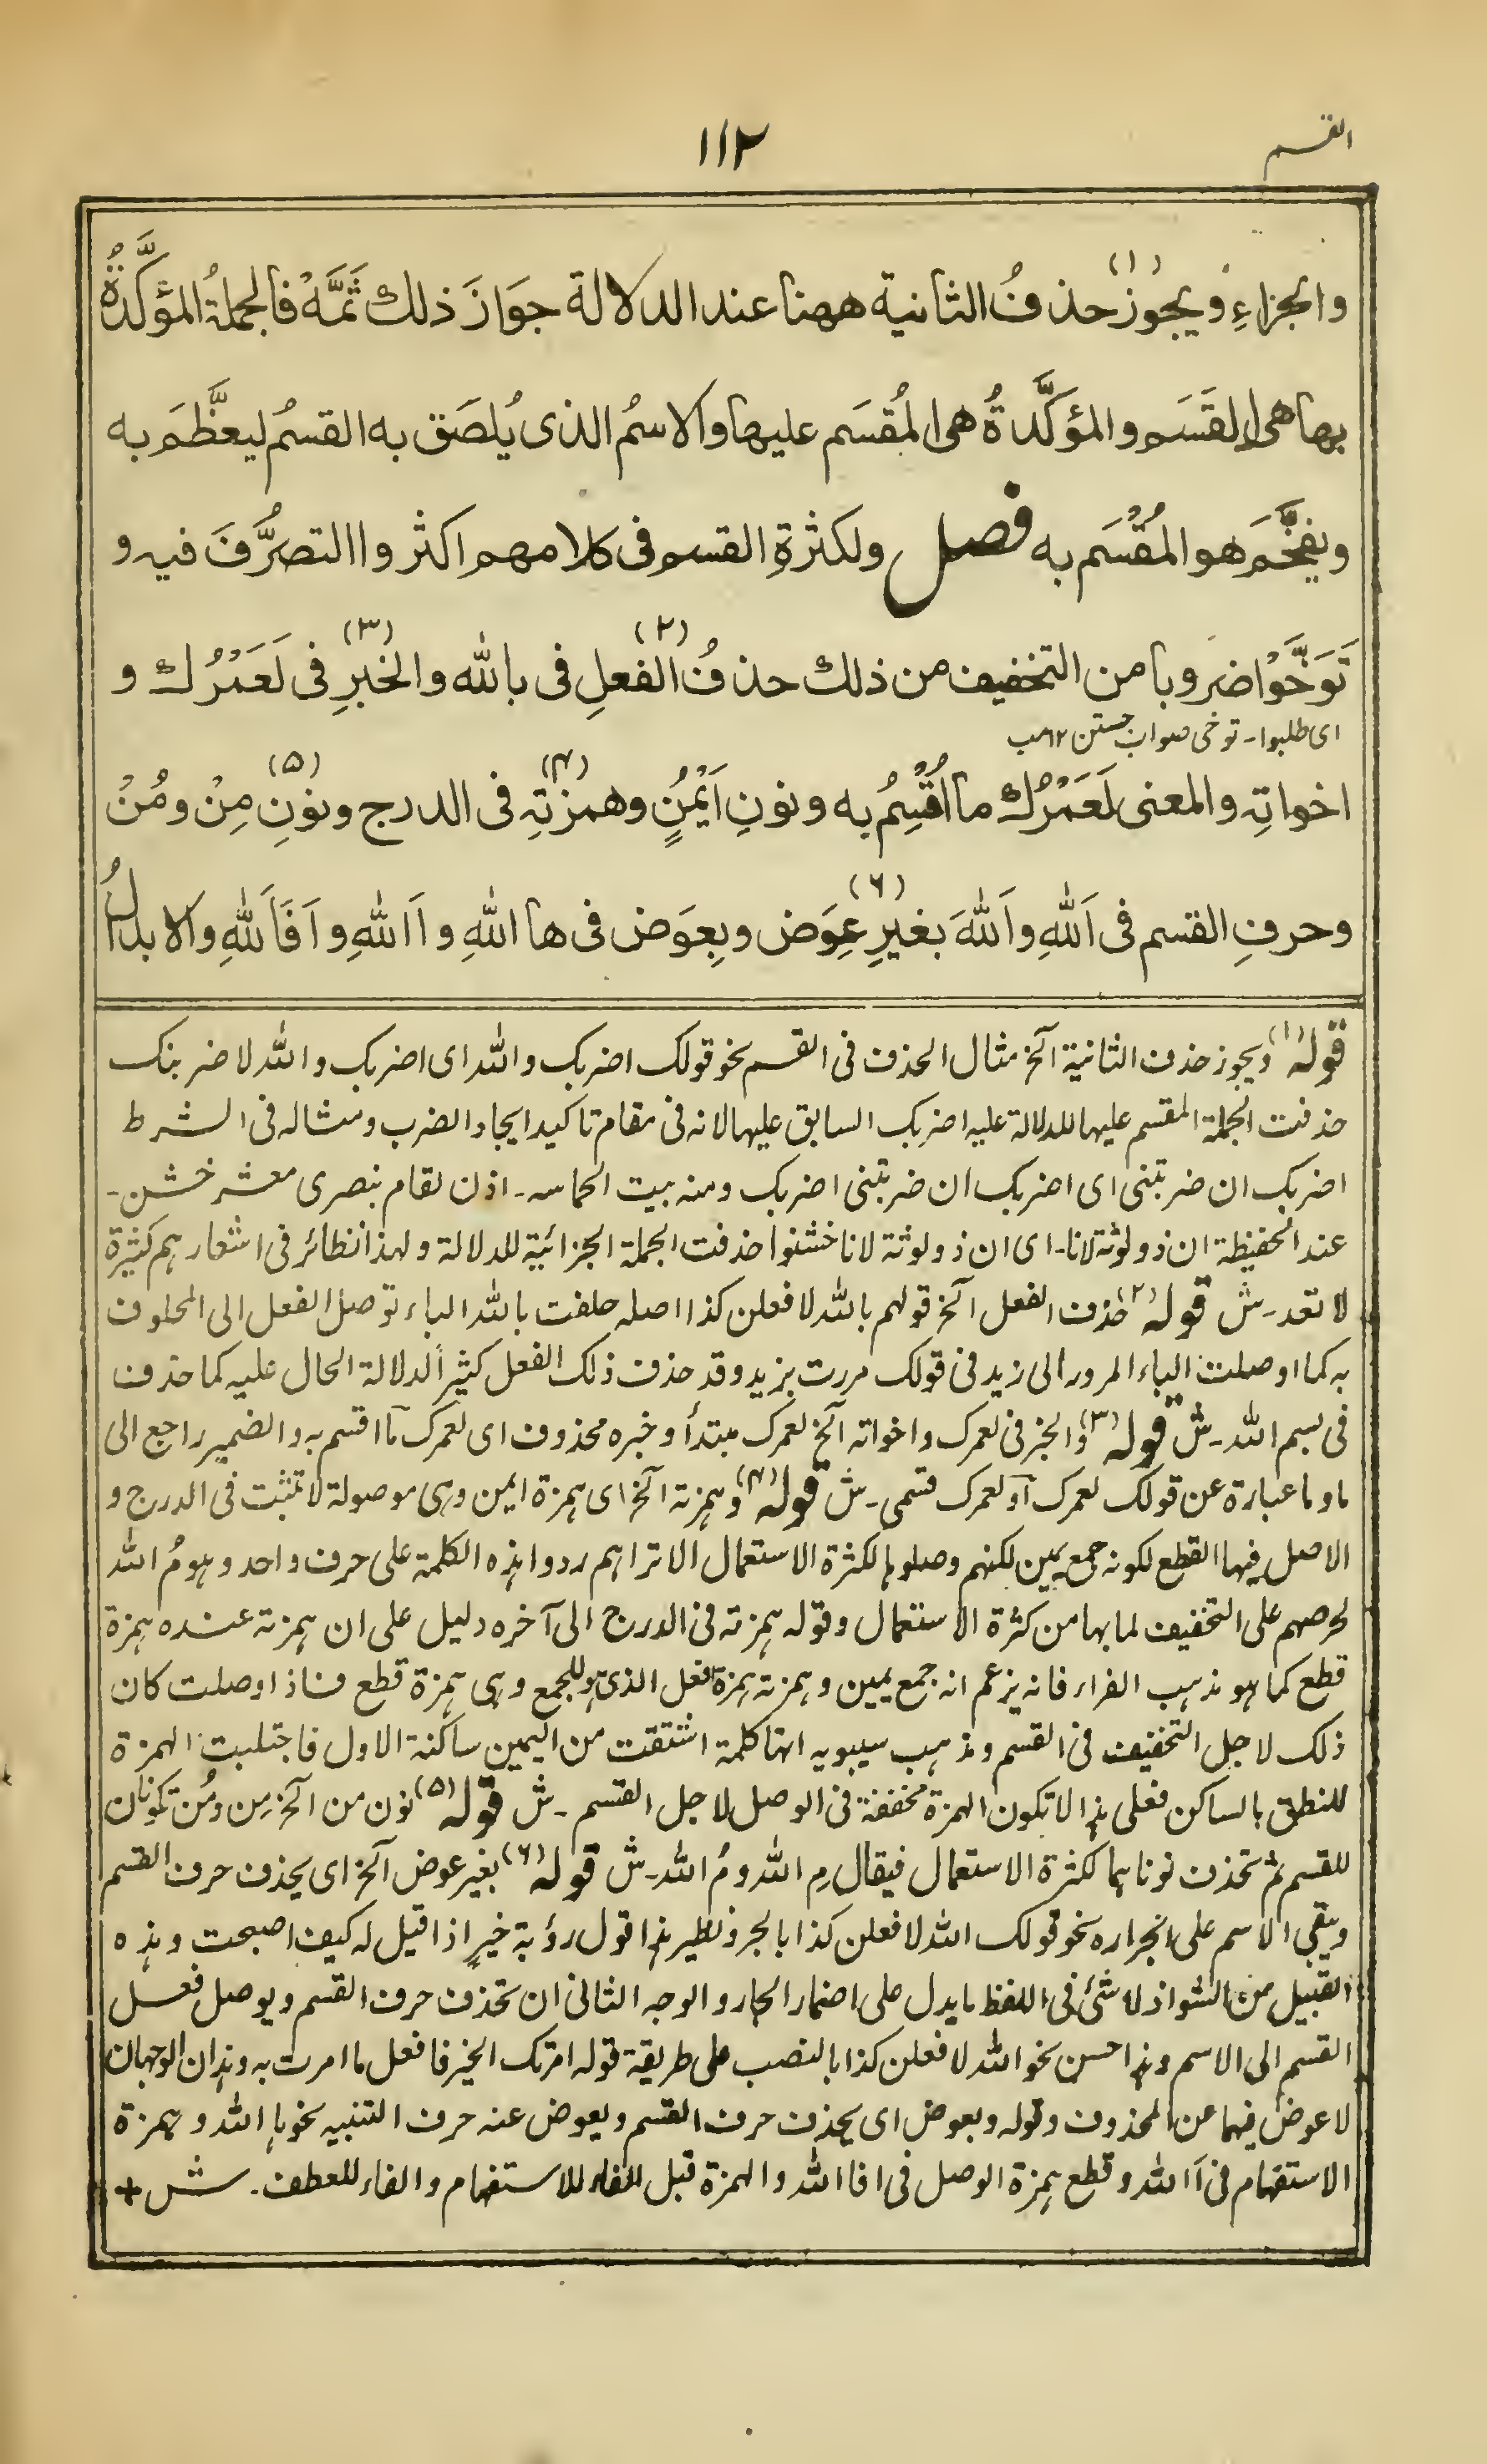 القسم
١١٢
والجزاءِ ويجوز (١) حذفُ الثانية ههنا عند الدلالة جوَازَ ذلك ثَمَّهْ فالجملةُ المؤكَّدةُ
بها هى القَسَم والمؤكَّدةُ هى المُقسَم عليها والاسمُ الذى يُلصَق به القسمُ ليعظَّمَ به
ويفخَّمَ هو المُقْسَم به فصل ولكثرةِ القسم فى كلامهم اكثروا التصرُّفَ فيه و
تَوَخَّوْا ضروبا من التخفيف من ذلك حذفُ (٢) الفعلِ فى بالله والخبرِ (٣) فى لَعَمْرُك و
اى طلبوا۔ توخى صواب جستن ١٢ مب
اخواتِه والمعنى لَعَمْرُك ما اُقْسِمُ به ونونِ اَيْمُنٍ وهمزتِه (٤) فى الدرج ونونِ (٥) مِنْ ومُنْ
وحرفِ القسم فى اَللهِ واَللهَ بغيرِ (٦) عِوَض وبِعِوَض فى ها اللهِ و اَاللهِ و اَفَاَللهِ والابدالُ
قوله (١) ويجوز حذف الثانية آلخ مثال الحذف فى القسم نحو قولك اضربك والله اى اضربك والله لاضربنك
حذفت الجملة المقسم عليها للدلالة عليه اضربك السابق عليها لانه فى مقام تاكيد ايجاد الضرب ومثاله فى الشرط
اضربك ان ضربتنى اى اضربك ان ضربتنى اضربك ومنه بيت الحماسه۔ اذن لقام بنصرى معشر خشن۔
عند الحفيظة ان ذو لوثة لانا۔ اى ان ذو لوثة لانا خشنوا حذفت الجملة الجزائية للدلالة ولهذا نظائر فى اشعارهم كثيرة
لا تعد۔ ش قوله (٢) حذف الفعل آلخ قولهم بالله لافعلن كذا اصله حلفت بالله الباء توصل الفعل الى المحلوف
به كما اوصلت الباء المرور الى زيد فى قولك مررت بزيد وقد حذف ذلك الفعل كثيراً لدلالة الحال عليه كما حذف
فى بسم الله۔ ش قوله (٣) والخبر فى لعمرك واخواته آلخ لعمرك مبتدأ وخبره محذوف اى لعمرك ما اقسم به والضمير راجع الى
ما وما عبارة عن قولك لعمرك آو لعمرك قسمى۔ ش قوله (٤) وهمزته آلخ اى همزة ايمن وهى موصولة لا تثبت فى الدرج و
الاصل فيها القطع لكونه جمع يمين لكنهم وصلوها لكثرة الاستعمال الا تراهم ردوا هذه الكلمة على حرف واحد وهو مُ الله
لحرصهم على التخفيف لما بها من كثرة الاستعمال وقوله همزته فى الدرج الى آخره دليل على ان همزته عنده همزة
قطع كما هو مذهب الفراء فانه يزعم انه جمع يمين وهمزته همزة افعل الذى هو للجمع وهى همزة قطع فاذا وصلت كان
ذلك لاجل التخفيف فى القسم ومذهب سيبويه انها كلمة اشتقت من اليمين ساكنة الاول فاجتلبت الهمزة
للنطق بالساكن فعلى هذا لا تكون الهمزة مخففة فى الوصل لاجل القسم۔ ش قوله (٥) نون من آلخ مِن ومُن تكونان
للقسم ثم تحذف نوناهما لكثرة الاستعمال فيقال مِ الله ومُ الله۔ ش قوله (٦) بغير عوض آلخ اى يحذف حرف القسم
ويبقى الاسم على انجراره نحو قولك الله لافعلن كذا بالجر ونظير هذا قول رؤبة خيرٍ اذا قيل له كيف اصبحت وهذه
القبيل من الشواذ لا شئ فى اللفظ ما يدل على اضمار الجار والوجه الثانى ان تحذف حرف القسم ويوصل فعل
القسم الى الاسم وهذا حسن نحو الله لافعلن كذا بالنصب على طريقة قوله امرتك الخير فافعل ما امرت به وهذان الوجهان
لا عوض فيهما عن المحذوف وقوله وبعوض اى يحذف حرف القسم ويعوض عنه حرف التنبيه نحو ها الله وهمزة
الاستفهام فى آالله وقطع همزة الوصل فى افاالله والهمزة قبل الفاء للاستفهام والفاء للعطف۔ ش +